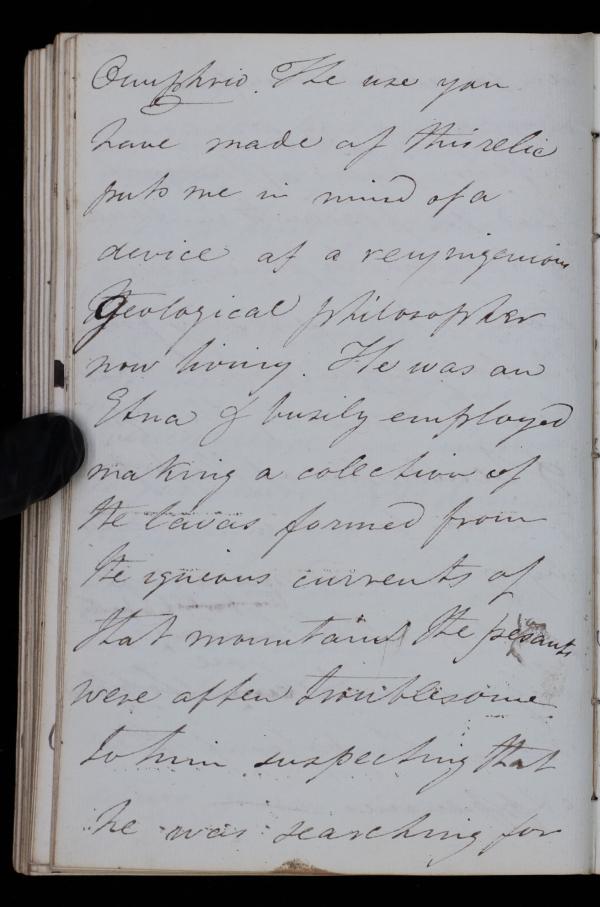 Onuphrio. The use you
have made of this relic
puts me in mind of a
device of a very ingenious
Geological philosopher
now living. He was on
Etna & busily employed
making a colection of
the lavas formed from
the igneous currents of
that mountain the pesants
were often troublesome
to him suspecting that
he was searching for